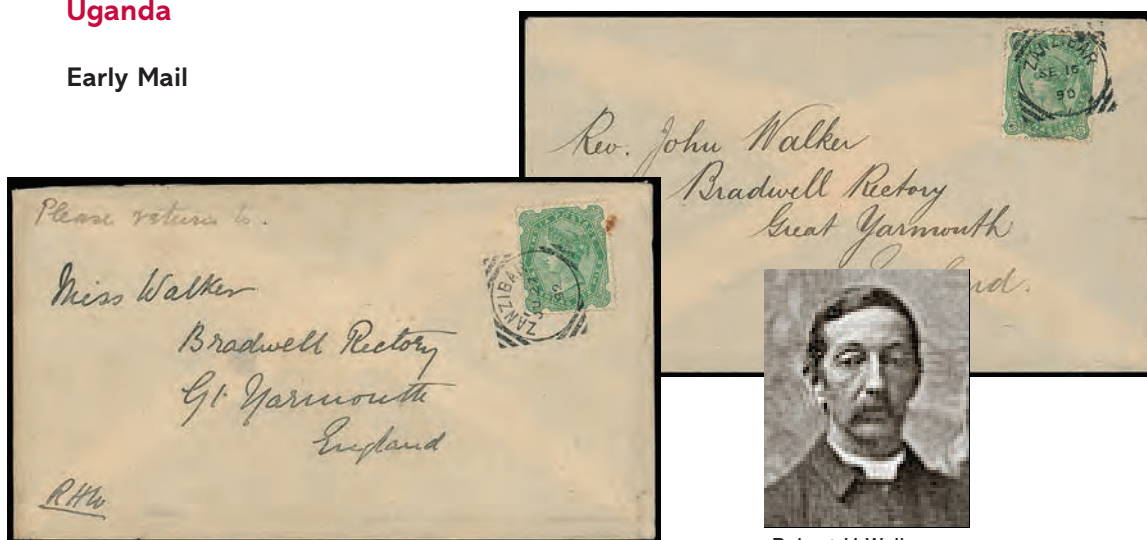 Uganda
Early Mail
ZANZIBAR
SE 15
90
Rev. John Walker
Bradwell Rectory
Great Yarmouth
Please return to.
ZANZIBA
92
Miss Walker
Bradwell Rectory
Gt. Yarmouth
England
RHW